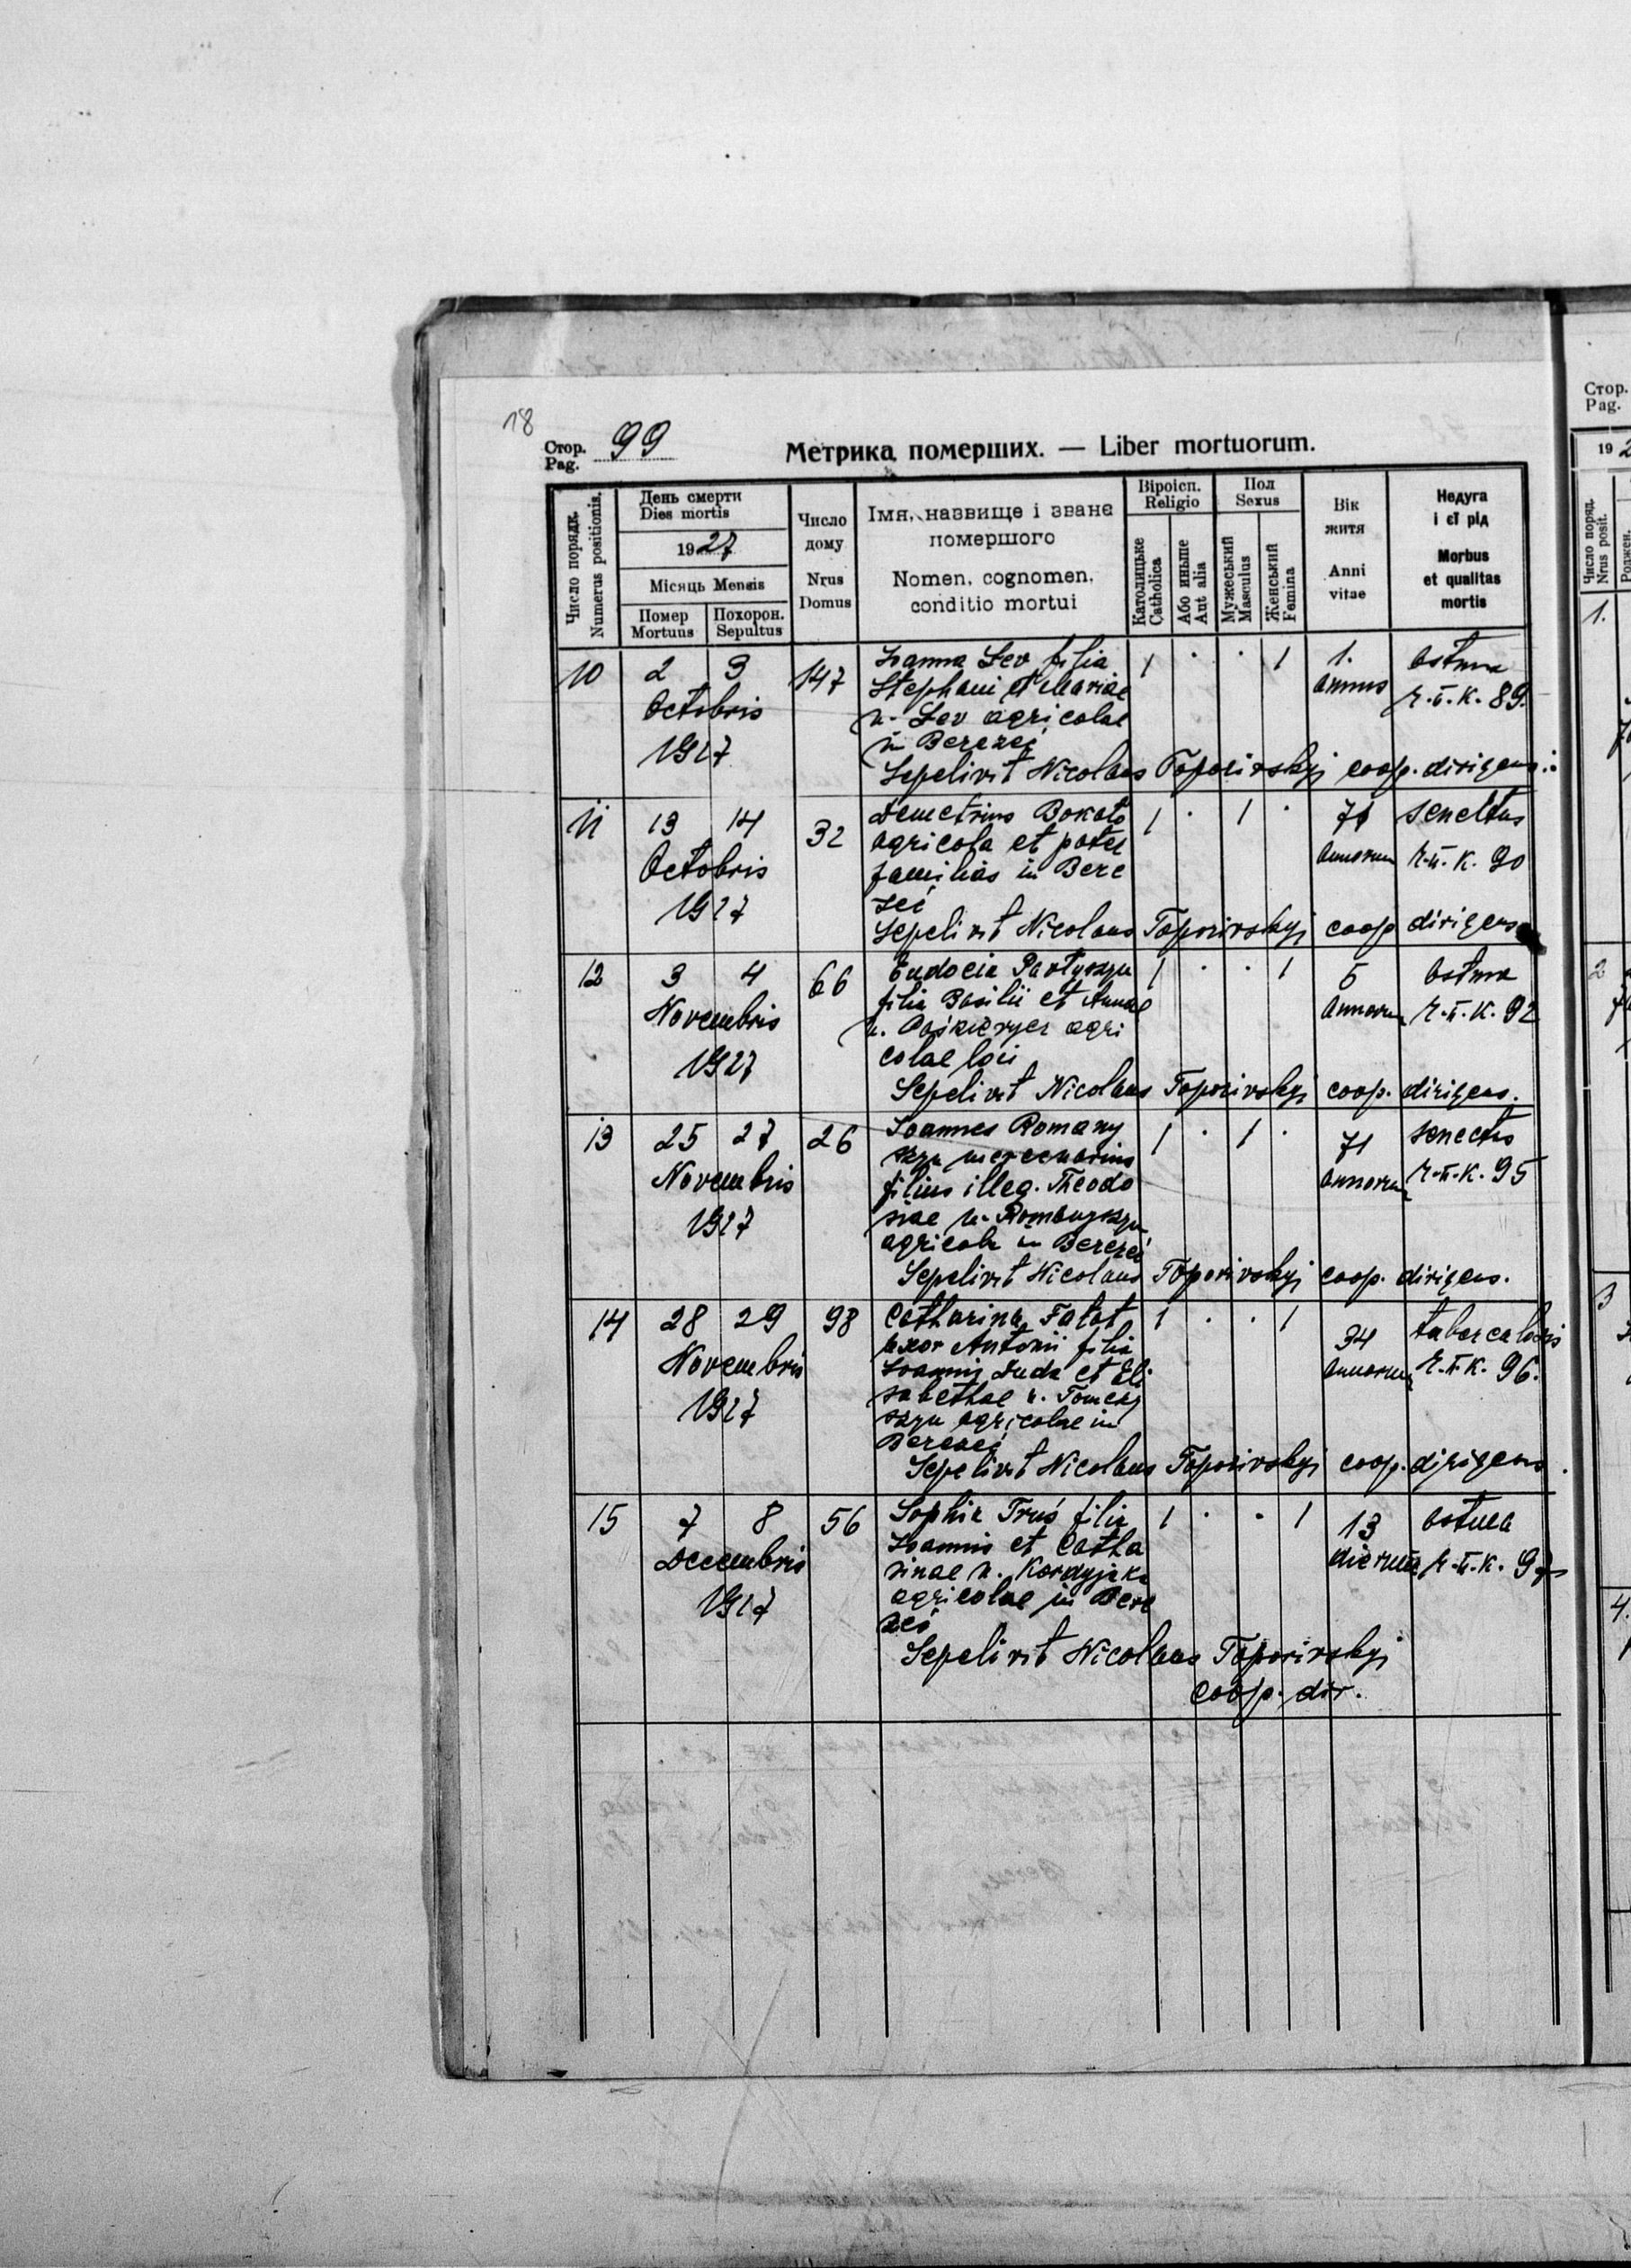 18
Стор. 99
Pag.
Метрика померших. — Liber mortuorum.
Число порядк.
Numerus positionis.
День смерти
Dies mortis
1927
Місяць Mensis
Помер
Mortuus
Похорон.
Sepultus
Число
дому
Nrus
Domus
Імя, назвище і зване
помершого
Nomen, cognomen,
conditio mortui
Віроісп.
Religio
Католицьке
Catholica
Або иньше
Aut alia
Пол
Sexus
Мужеський
Masculus
Женський
Femina
Вік
житя
Anni
vitae
Недуга
і єї рід
Morbus
et qualitas
mortis
10 2 3 147 Joanna Lev filia 1 · · 1 1. astma
Octobris Stephani et Mariae annus 89.
1927 n. Lev agricolae
in Berezci
Sepelivit Nicolaus Toporivskyj coop. dirigens.
11 13 14 32 Demetrius Bokoto 1 · 1 · 71 senectus
Octobris agricola et pater annorum 90
1927 familias in Bere
zci
Sepelivit Nicolaus Toporivskyj coop dirigens
12 3 4 66 Eudocia Partyszyn 1 · · 1 5 astma
Novembris filia Basilii et Annae annorum 92
1927 agri
colae loci
Sepelivit Nicolaus Toporivskyj coop. dirigens.
13 25 27 26 Joannes Romany 1 · 1 · 71 senectus
Novembris szyn mercenarius annorum 95
1927 filius illeg. Theodo
siae n. Romanyszyn
agricola in Berezci
Sepelivit Nicolaus Toporivskyj coop. dirigens.
14 28 29 98 Catharina Fatot 1 · · 1 34 tuberculosis
Novembris uxor Antonii filia annorum 96.
1927 Joannis Duda et Eli
sabethae n. Tomczy
szyn agricolae in
Berezci
Sepelivit Nicolaus Toporivskyj coop. dirigens.
15 7 8 56 Sophia Truś filia 1 · · 1 13 astma
Decembris Joannis et Catha dierum 97
1927 rinae n. Kordyjaka
agricolae in Bere
zci
Sepelivit Nicolaus Toporivskyj
coop. dir.
Стор.
Pag.
19 2
Число поряд.
Nrus posit.
Рожден.
1.
2
3
4.